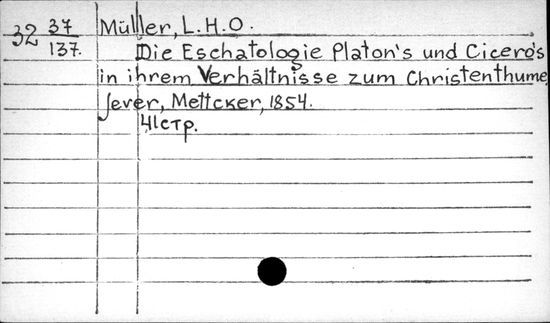 32 37/137. Müller, L.H.O.
Die Eschatologie Platon's und Cicero's
in ihrem Verhältnisse zum Christenthume
Jever, Mettcker, 1854.
41стр.